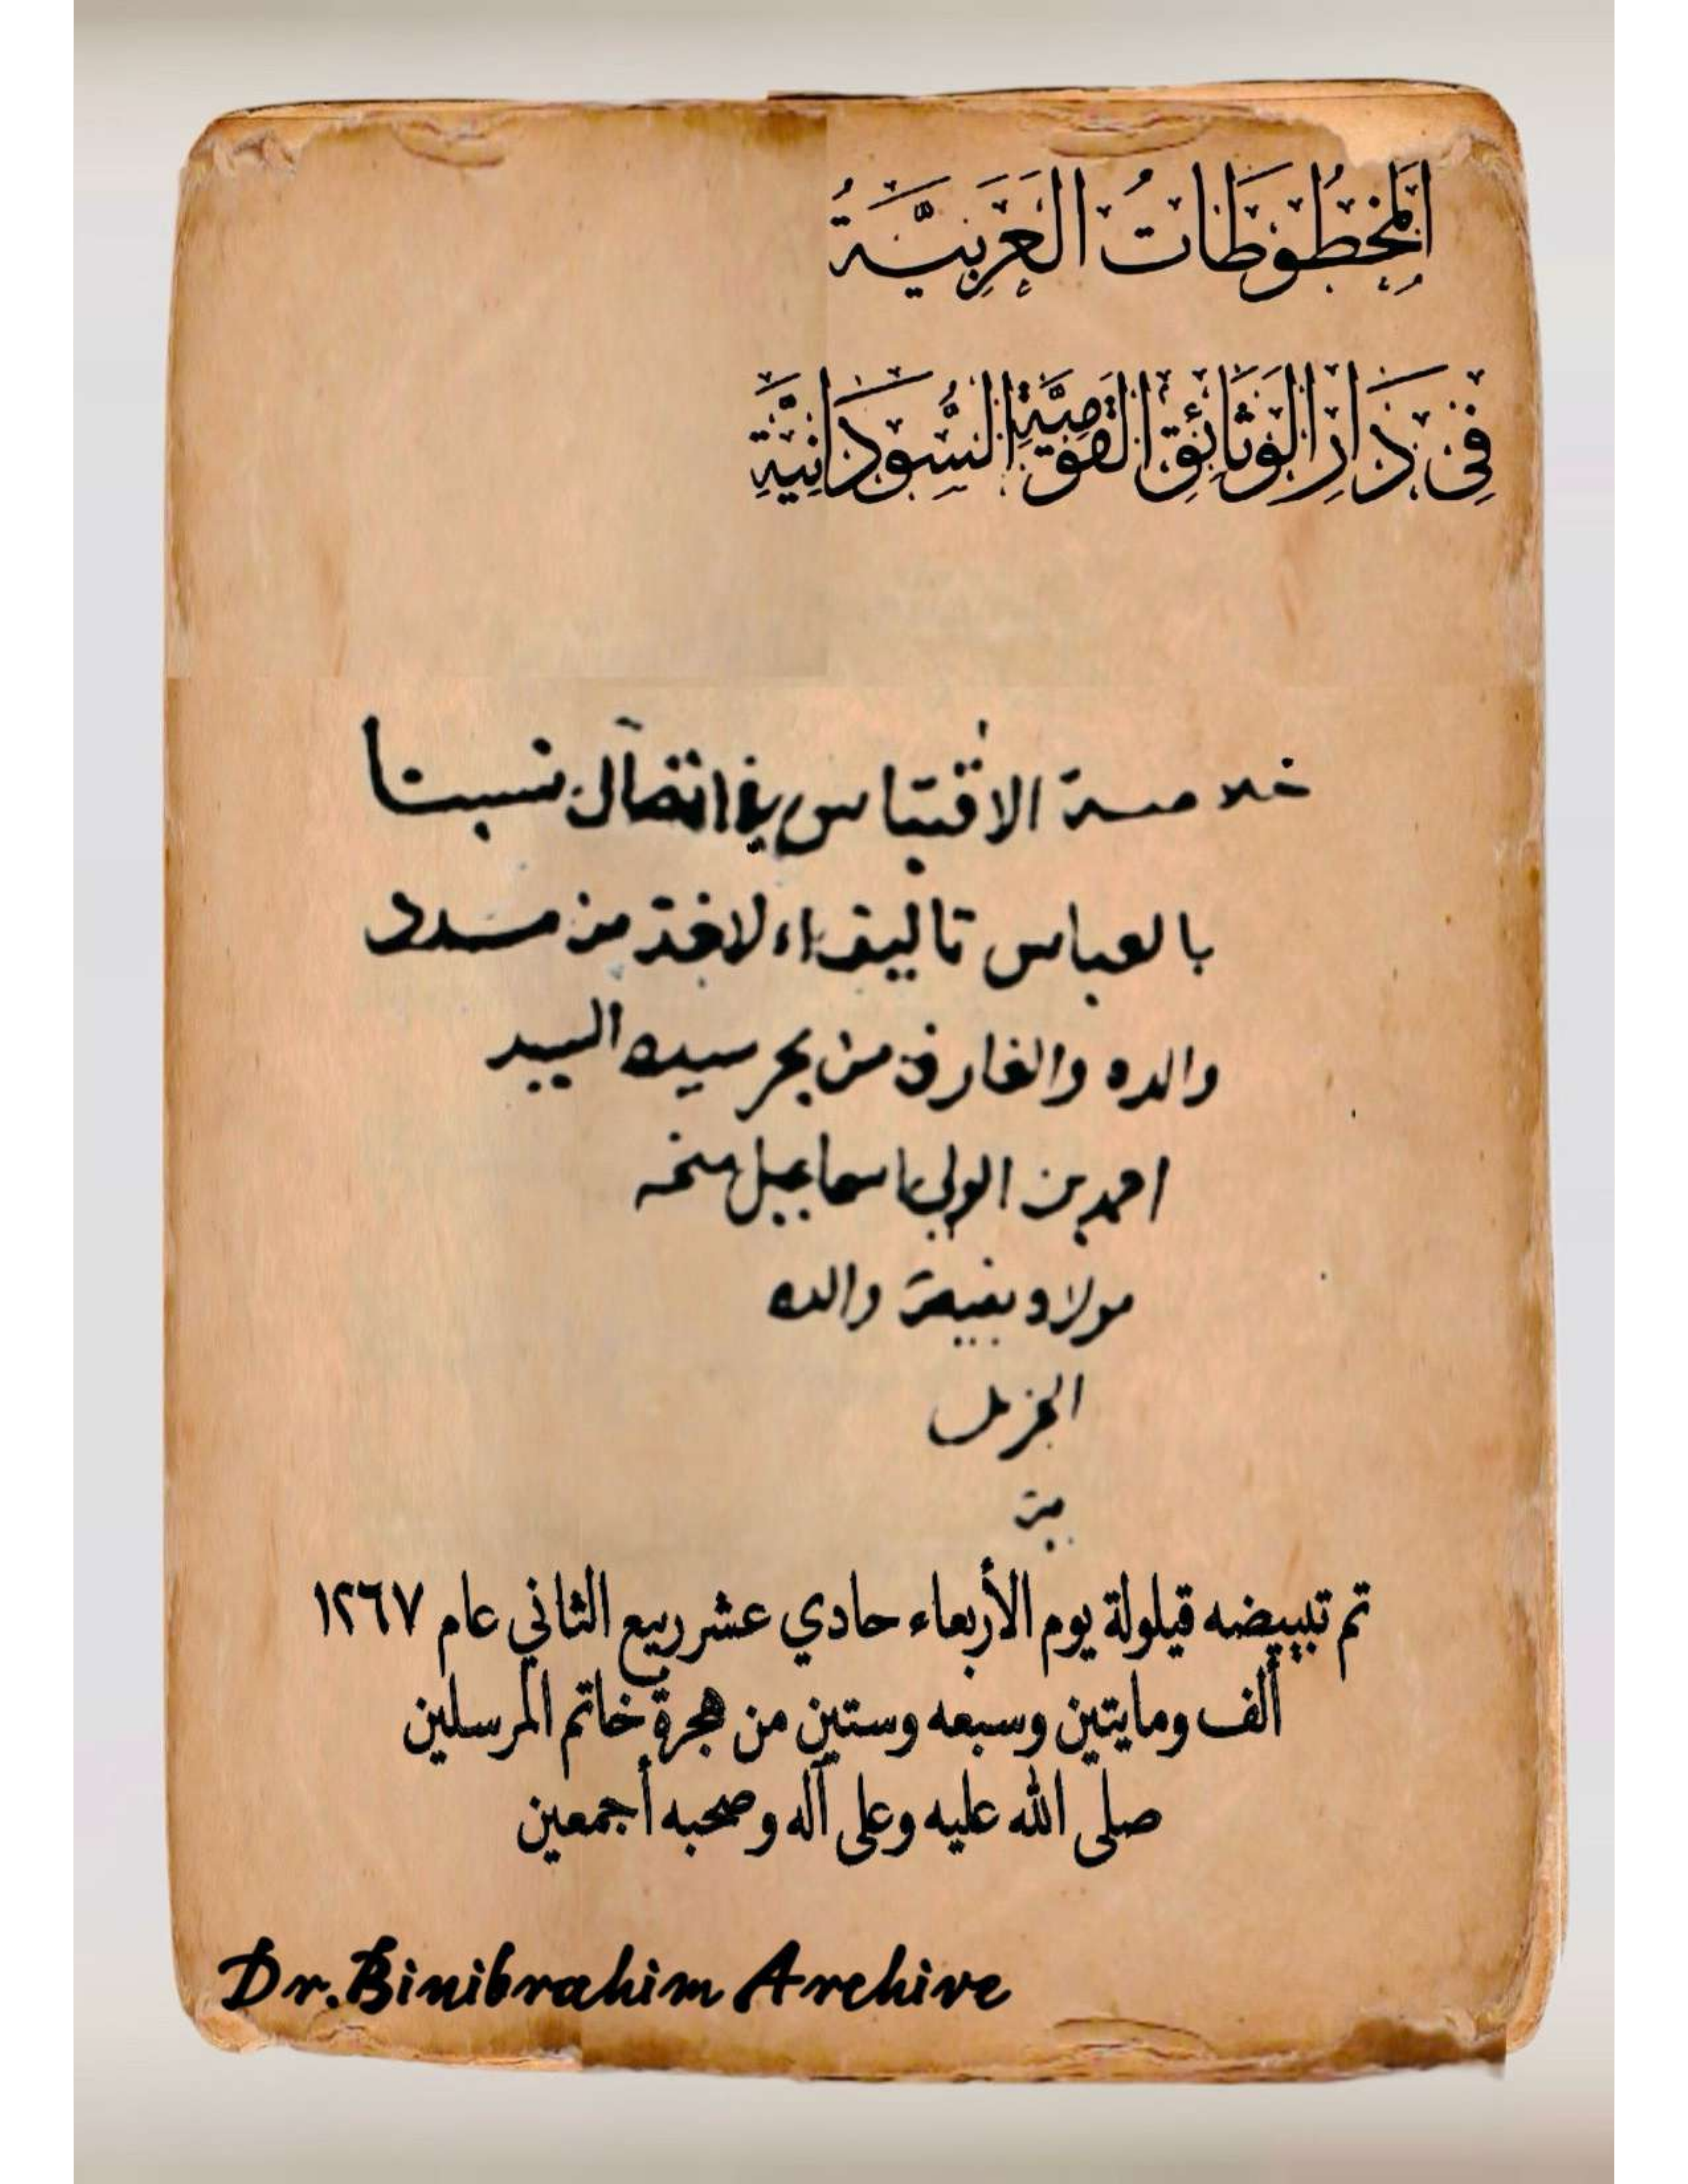 اَلمَخطُوطَاتُ العَرَبِيَّةُ
فِي دَارِ الوَثَائِقِ القَومِيَّةِ السُّودَانِيَّةِ
خلاصة الاقتباس في اتصال نسبنا
بالعباس تاليف الاخذ من مدد
والده والغارف من بحر سيده السيد
احمد بن الولي اسماعيل منحه
مولاه بغيته والده
الجزيل
تم تبييضه قيلولة يوم الأربعاء حادي عشر ربيع الثاني عام ١٢٦٧
ألف ومايتين وسبعه وستين من هجرة خاتم المرسلين
صلى الله عليه وعلى آله وصحبه أجمعين
Dr.Binibrahim Archive